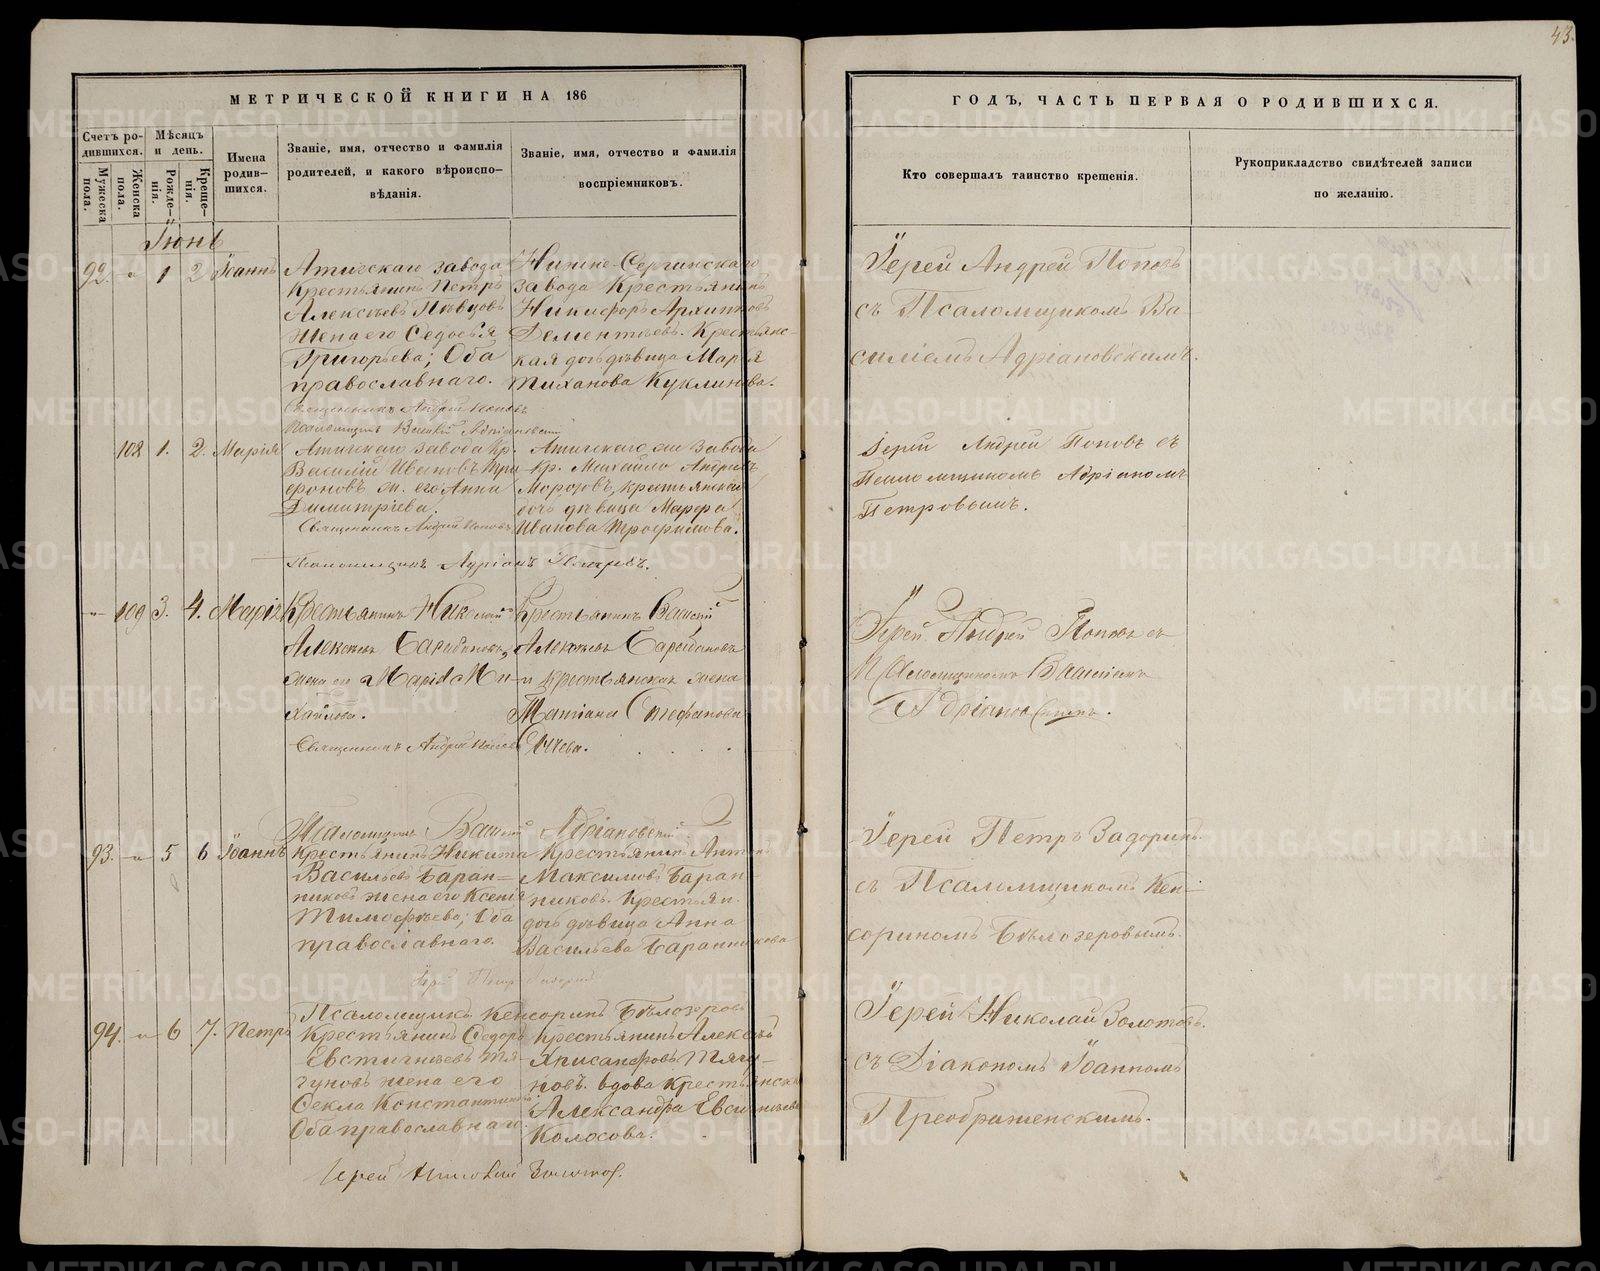 43.
МЕТРИЧЕСКОЙ КНИГИ НА 186
ГОДЪ, ЧАСТЬ ПЕРВАЯ О РОДИВШИХСЯ.
Счетъ ро-
дившихся.
Мужеска
пола.
Женска
пола.
Мѣсяцъ
и день.
Рожде-
нія.
Креще-
нія.
Имена
родив-
шихся.
Званіе, имя, отчество и фамилія
родителей, и какого вѣроиспо-
вѣданія.
Званіе, имя, отчество и фамилія
воспріемниковъ.
Кто совершалъ таинство крещенія.
Рукоприкладство свидѣтелей записи
по желанію.
Іюнь
92. " 1 2 Іоаннъ
Атигскаго завода
Крестьянинъ Петръ
Алексѣевъ Пѣвцовъ
Жена его Ѳедосья
Григорьева; Оба
православнаго.
Нижне-Сергинскаго
завода Крестьянинъ
Никифоръ Архиповъ
Дементьевъ. Крестьянс-
кая дочь дѣвица Марія
Тиханова Куклинова.
Іерей Андрей Поповъ
съ Псаломщикомъ Ва-
силіемъ Адріановскимъ.
Священникъ Андрей Поповъ
Псаломщикъ Василій Адріановскій
102 1. 2. Марія
Атигскаго завода кр.
Василій Ивановъ Три-
фоновъ ж. его Анна
Димитріева.
Атигскаго же завода
кр. Михайло Андреевъ
Морозовъ, крестьянская
дочь дѣвица Марфа
Иванова Трофимова.
Іерей Андрей Поповъ съ
Псаломщикомъ Адріаномъ
Петровымъ.
Священникъ Андрей Поповъ
Псаломщикъ Адріанъ Петровъ.
" 103 3. 4. Марія
Крестьянинъ Николай
Алексѣевъ
жена его Марія Ми-
хайлова.
Крестьянинъ Василій
Алексѣевъ
и крестьянская жена
Татіана Стефанова
Іерей Андрей Поповъ съ
Псаломщикомъ Василіемъ
Адріановскимъ.
Священникъ Андрей Поповъ
Псаломщикъ Василій Адріановскій
93. " 5 6 Іоаннъ
Крестьянинъ Никита
Васильевъ Баран-
никовъ жена его Ксенія
Тимофѣева; Оба
православнаго.
Крестьянинъ Антонъ
Максимовъ Баран-
никовъ. Крестьян.
дочь дѣвица Анна
Васильева Баранникова
Іерей Петръ Задоринъ
съ Псаломщикомъ Кен-
сориномъ Бѣлозеровымъ.
Іерей Петръ Задоринъ
Псаломщикъ Кенсоринъ Бѣлозеровъ
94. " 6 7. Петръ
Крестьянинъ Ѳедоръ
Евстигнѣевъ Тя-
гуновъ жена его
Ѳекла Константинова
Оба православнаго.
Крестьянинъ Алексѣй
Хрисанфовъ Тягу-
новъ. вдова Крестьянская
Александра Евсигнѣева
Колосова.
Іерей Николай Золотовъ.
съ Діакономъ Іоанномъ
Преображенскимъ.
Іерей Николай Золотов.